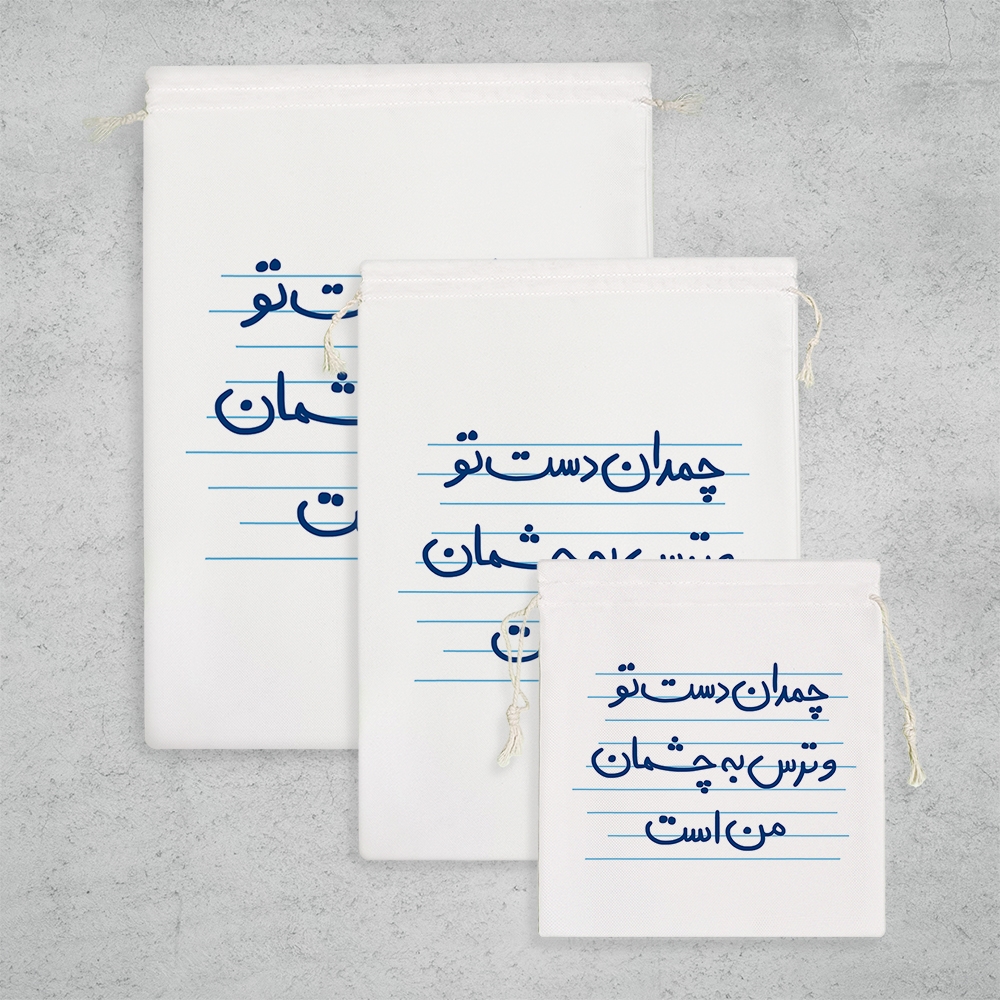 ت تو
شمان
ت
چمدان دست تو
و ترس به چشمان
ت
چمدان دست تو
و ترس به چشمان
من است